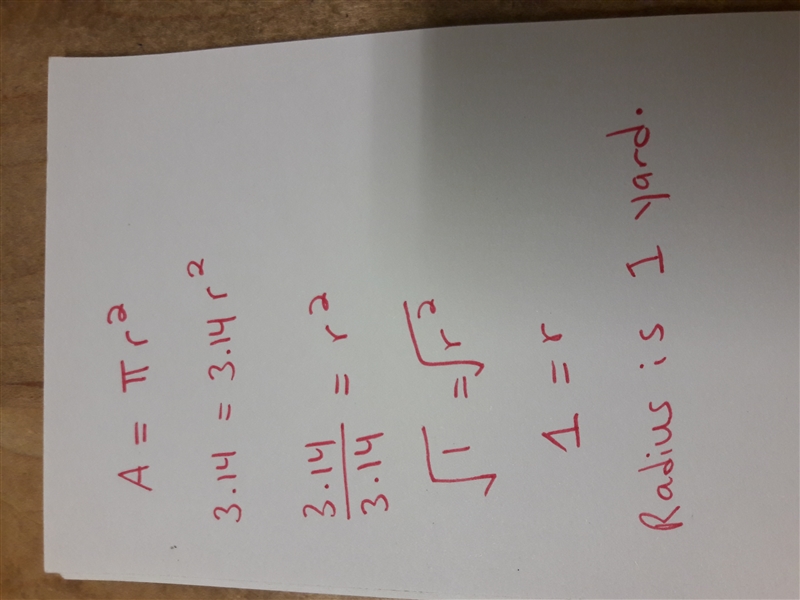 A = πr²
3.14 = 3.14r²
3.14/3.14 = r²
√1 = √r²
1 = r
Radius is 1 yard.